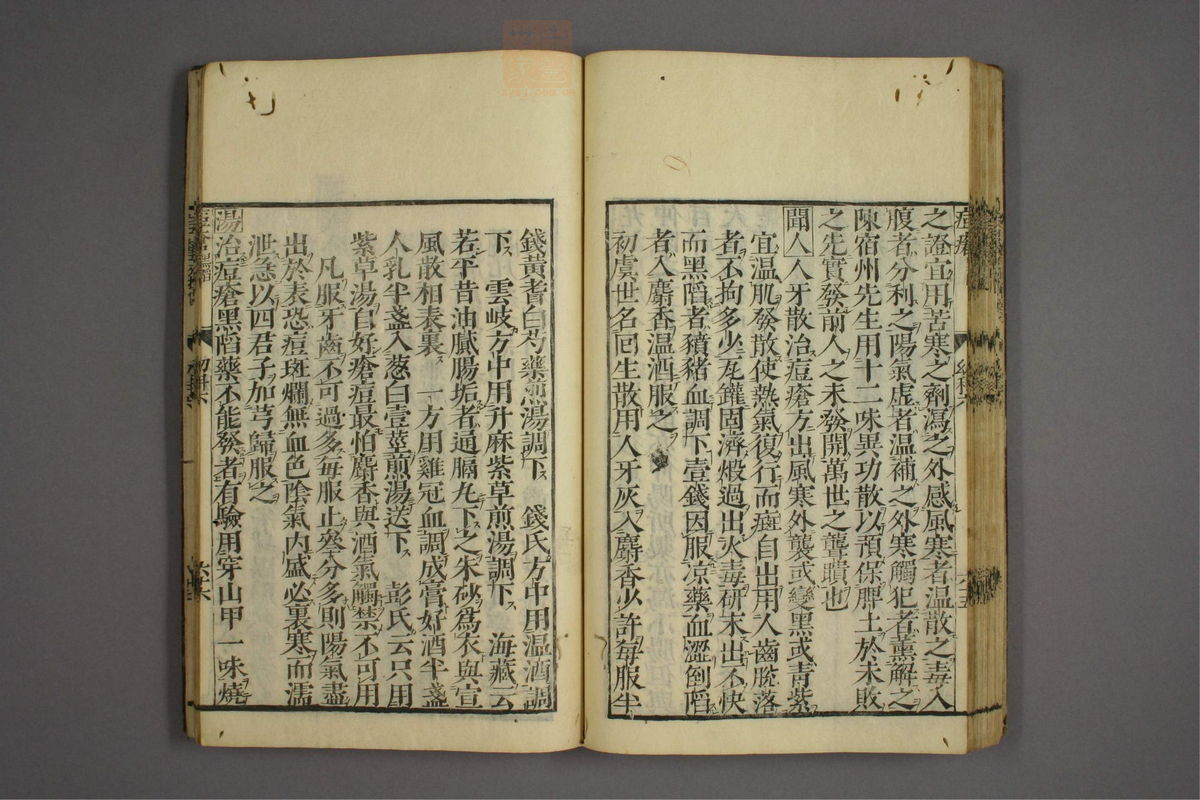 之證宜用苦寒之劑瀉之外感風寒者温散之毒入
腹者分利之陽氣虚者温補之外寒觸犯者薰解之
陳宿州先生用十二味異功散以預保脾土於未敗
之先實發前人之未發開萬世之聾瞶也
聞人人牙散治痘瘡方出風寒外襲或變黑或青紫
宜温肌發散使熱氣復行而斑自出用人齒脱落
者不拘多少瓦鑵固濟煅過出火毒研末出不快
而黑陷者獖豬血調下壹錢因服凉藥血澀倒陷
者入麝香温酒服之
初虞世名回生散用人牙灰入麝香少許毎服半
錢黃耆白芍藥煎湯調下 錢氏方中用温酒調
下 雲岐方中用升麻紫草煎湯調下 海藏云
若平昔油膩腸垢者通膈丸下之朱砂爲衣與宣
風散相表裏 一方用雞冠血調成膏好酒半盞
人乳半盞入葱白壹莖煎湯送下 彭氏云只用
紫草湯自好瘡痘最怕麝香與酒氣觸禁不可用
凡服牙齒不可過多毎服止叄分多則陽氣盡
出於表恐痘斑爛無血色陰氣内盛必裏寒而濡
泄急以四君子加芎歸服之
湯治痘瘡黑陷藥不能發者有驗用穿山甲一味燒